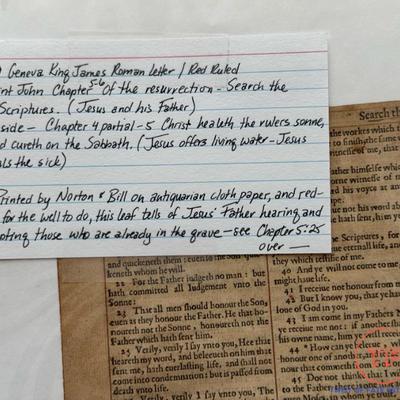 Geneva King James Roman Letter / Red Ruled
int John Chapter 5-6 Of the resurrection - Search the
Scriptures. (Jesus and his Father)
side - Chapter 4 partial - 5 Christ healeth the rulers sonne,
d cureth on the Sabbath. (Jesus offers living water - Jesus
als the sick)
rinted by Norton & Bill on antiquarian cloth paper, and red-
for the well to do, this leaf tells of Jesus' Father hearing and
oting those who are already in the grave - see Chapter 5:25
over —
and quickeneth them: euen so the Son quic
keneth whom he will.
22 For the Father judgeth no man: but
hath committed all Judgement vnto the
Sonne:
23 That all men should honour the Son,
euen as they honour the Father. He that ho-
noureth not the Sonne, honoureth not the
Father which hath sent him.
24 Verily, verily I say vnto you, Hee that
heareth my word, and beleeueth on him that
sent me, hath euerlasting life, and shall not
come into condemnation: but is passed from
death vnto life.
Verily, verily I say vnto you, The
Search th
the workes which th
to finish, the same
ather himselfe wh
orne witnesse of me.
rd his voyce at any
ape.
ot his word abi
hath sent, him ye
e Scriptures, for
e eternall life, and
hey which testifie of me.
40 And ye will not come to me,
might haue life.
41 I receiue not honour from m
42 But I know you, that ye hau
loue of God in you.
43 I am come in my Fathers N
ye receiue me not: if ano
his owne name, him ye wi
44 How can ye beleeue, wh
honour one of anoth
nour that commeth from
45 Doe not thinke that I w
to the Father: there is one